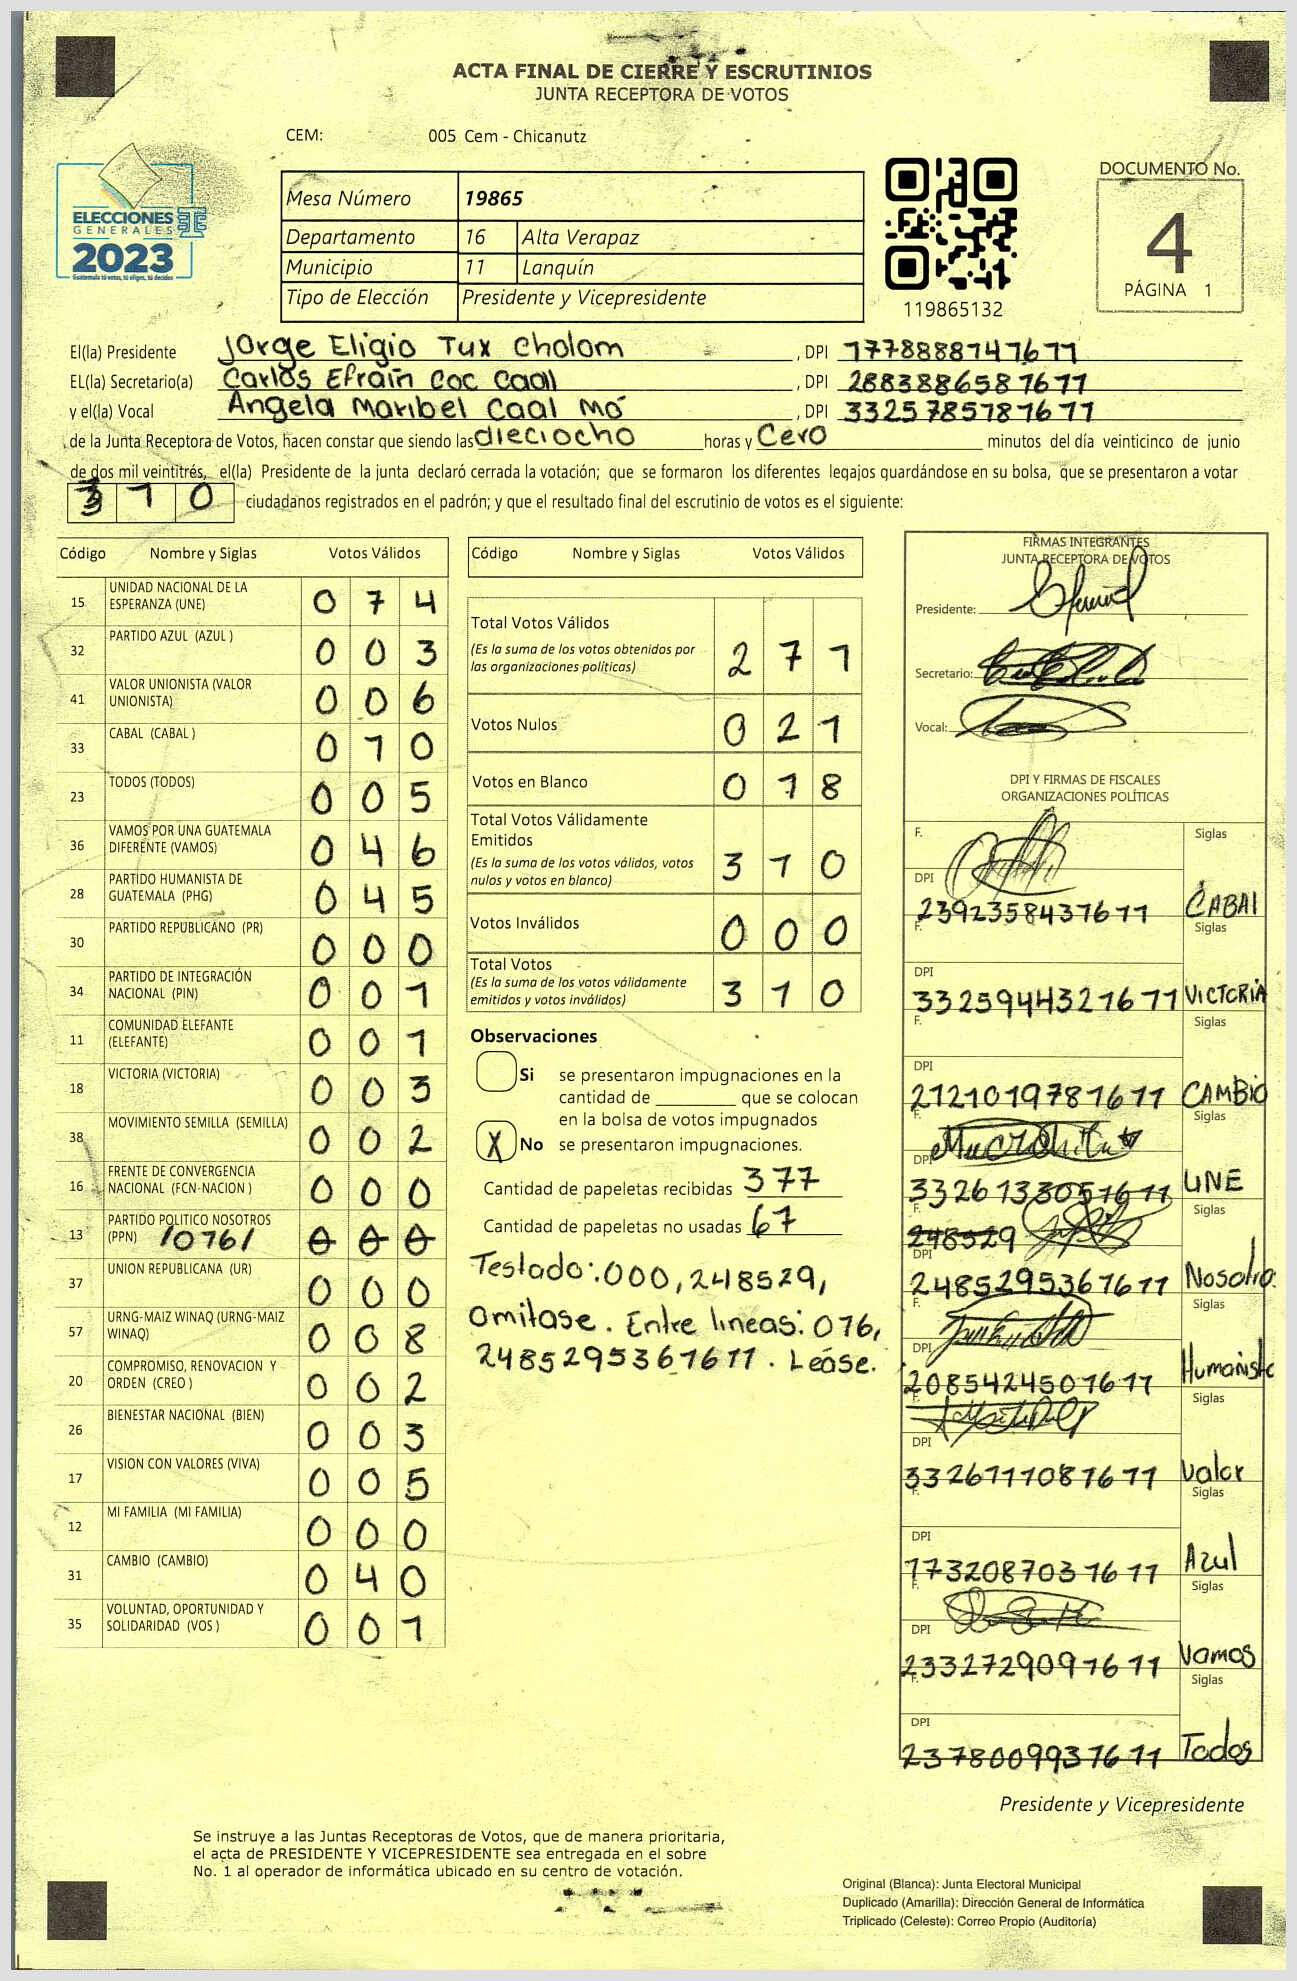 ACTA FINAL DE CIERRE Y ESCRUTINIOS
JUNTA RECEPTORA DE VOTOS
CEM: 005 Cem - Chicanutz
ELECCIONES
GENERALES
2023
Guatemala tú votas, tú eliges, tú decides
Mesa Número 19865
Departamento 16 Alta Verapaz
Municipio 11 Lanquín
Tipo de Elección Presidente y Vicepresidente
119865132
DOCUMENTO No.
4
PÁGINA 1
El(la) Presidente Jorge Eligio Tux Cholom, DPI 1778888747611
EL(la) Secretario(a) Carlos Efraín Coc Caal, DPI 2883886581611
y el(la) Vocal Angela Maribel Caal Mó, DPI 3325785781611
de la Junta Receptora de Votos, hacen constar que siendo las dieciocho horas y Cero minutos del día veinticinco de junio
de dos mil veintitrés, el(la) Presidente de la junta declaró cerrada la votación; que se formaron los diferentes legajos quardándose en su bolsa, que se presentaron a votar
310 ciudadanos registrados en el padrón; y que el resultado final del escrutinio de votos es el siguiente:
Código Nombre y Siglas Votos Válidos
15 UNIDAD NACIONAL DE LA ESPERANZA (UNE) 0 7 4
32 PARTIDO AZUL (AZUL ) 0 0 3
41 VALOR UNIONISTA (VALOR UNIONISTA) 0 0 6
33 CABAL (CABAL ) 0 1 0
23 TODOS (TODOS) 0 0 5
36 VAMOS POR UNA GUATEMALA DIFERENTE (VAMOS) 0 4 6
28 PARTIDO HUMANISTA DE GUATEMALA (PHG) 0 4 5
30 PARTIDO REPUBLICANO (PR) 0 0 0
34 PARTIDO DE INTEGRACIÓN NACIONAL (PIN) 0 0 1
11 COMUNIDAD ELEFANTE (ELEFANTE) 0 0 1
18 VICTORIA (VICTORIA) 0 0 3
38 MOVIMIENTO SEMILLA (SEMILLA) 0 0 2
16 FRENTE DE CONVERGENCIA NACIONAL (FCN-NACION ) 0 0 0
13 PARTIDO POLITICO NOSOTROS (PPN) /076/ 0 0 0
37 UNION REPUBLICANA (UR) 0 0 0
57 URNG-MAIZ WINAQ (URNG-MAIZ WINAQ) 0 0 8
20 COMPROMISO, RENOVACION Y ORDEN (CREO ) 0 0 2
26 BIENESTAR NACIONAL (BIEN) 0 0 3
17 VISION CON VALORES (VIVA) 0 0 5
12 MI FAMILIA (MI FAMILIA) 0 0 0
31 CAMBIO (CAMBIO) 0 4 0
35 VOLUNTAD, OPORTUNIDAD Y SOLIDARIDAD (VOS ) 0 0 1
Código Nombre y Siglas Votos Válidos
Total Votos Válidos
(Es la suma de los votos obtenidos por las organizaciones políticas) 2 7 1
Votos Nulos 0 2 1
Votos en Blanco 0 1 8
Total Votos Válidamente Emitidos
(Es la suma de los votos válidos, votos nulos y votos en blanco) 3 1 0
Votos Inválidos 0 0 0
Total Votos
(Es la suma de los votos válidamente emitidos y votos inválidos) 3 1 0
Observaciones
Si se presentaron impugnaciones en la
cantidad de ________ que se colocan
en la bolsa de votos impugnados
X No se presentaron impugnaciones.
Cantidad de papeletas recibidas 377
Cantidad de papeletas no usadas 67
Testado: 000, 248529,
omitase. Entre lineas: 076,
2485295361611. Léase.
FIRMAS INTEGRANTES
JUNTA RECEPTORA DE VOTOS
Presidente:
Secretario:
Vocal:
DPI Y FIRMAS DE FISCALES
ORGANIZACIONES POLÍTICAS
F. Siglas
DPI 2392358431611 CABAL
F. Siglas
DPI 3325944321611 VICTORIA
F. Siglas
DPI 2121019781611 CAMBIO
F. Siglas
DPI 3326133051611 UNE
F. 248529 Siglas
DPI 2485295361611 Nosotro.
F. Siglas
DPI 2085424501611 Humanista
F. Siglas
DPI 3326111081611 Valor
F. Siglas
DPI 1732087031611 Azul
F. Siglas
DPI 2332729091611 Vamos
F. Siglas
DPI 2378009931611 Todos
Presidente y Vicepresidente
Se instruye a las Juntas Receptoras de Votos, que de manera prioritaria,
el acta de PRESIDENTE Y VICEPRESIDENTE sea entregada en el sobre
No. 1 al operador de informática ubicado en su centro de votación.
Original (Blanca): Junta Electoral Municipal
Duplicado (Amarilla): Dirección General de Informática
Triplicado (Celeste): Correo Propio (Auditoría)